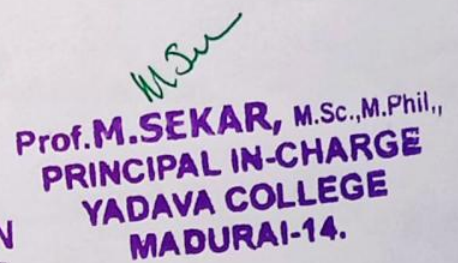 M Su
Prof.M.SEKAR, M.Sc.,M.Phil.,
PRINCIPAL IN-CHARGE
YADAVA COLLEGE
N
MADURAI-14.